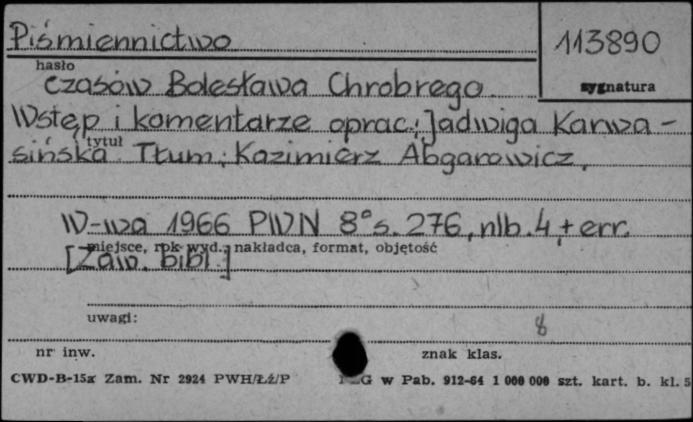 Piśmiennictwo
113890
hasło
sygnatura
czasów Bolesława Chrobrego.
Wstęp i komentarze oprac.: Jadwiga Karwa-
tytuł
sińska. Tłum.: Kazimierz Abgarowicz.
W-wa 1966 PWN 8° s. 276, nlb. 4, + err.
miejsce, rok wyd., nakładca, format, objętość
[Zaw. bibl.]
uwagi:
8
nr inw.
znak klas.
CWD-B-15x Zam. Nr 2924 PWH/Łź/P
G w Pab. 912-64 1 000 000 szt. kart. b. kl. 5